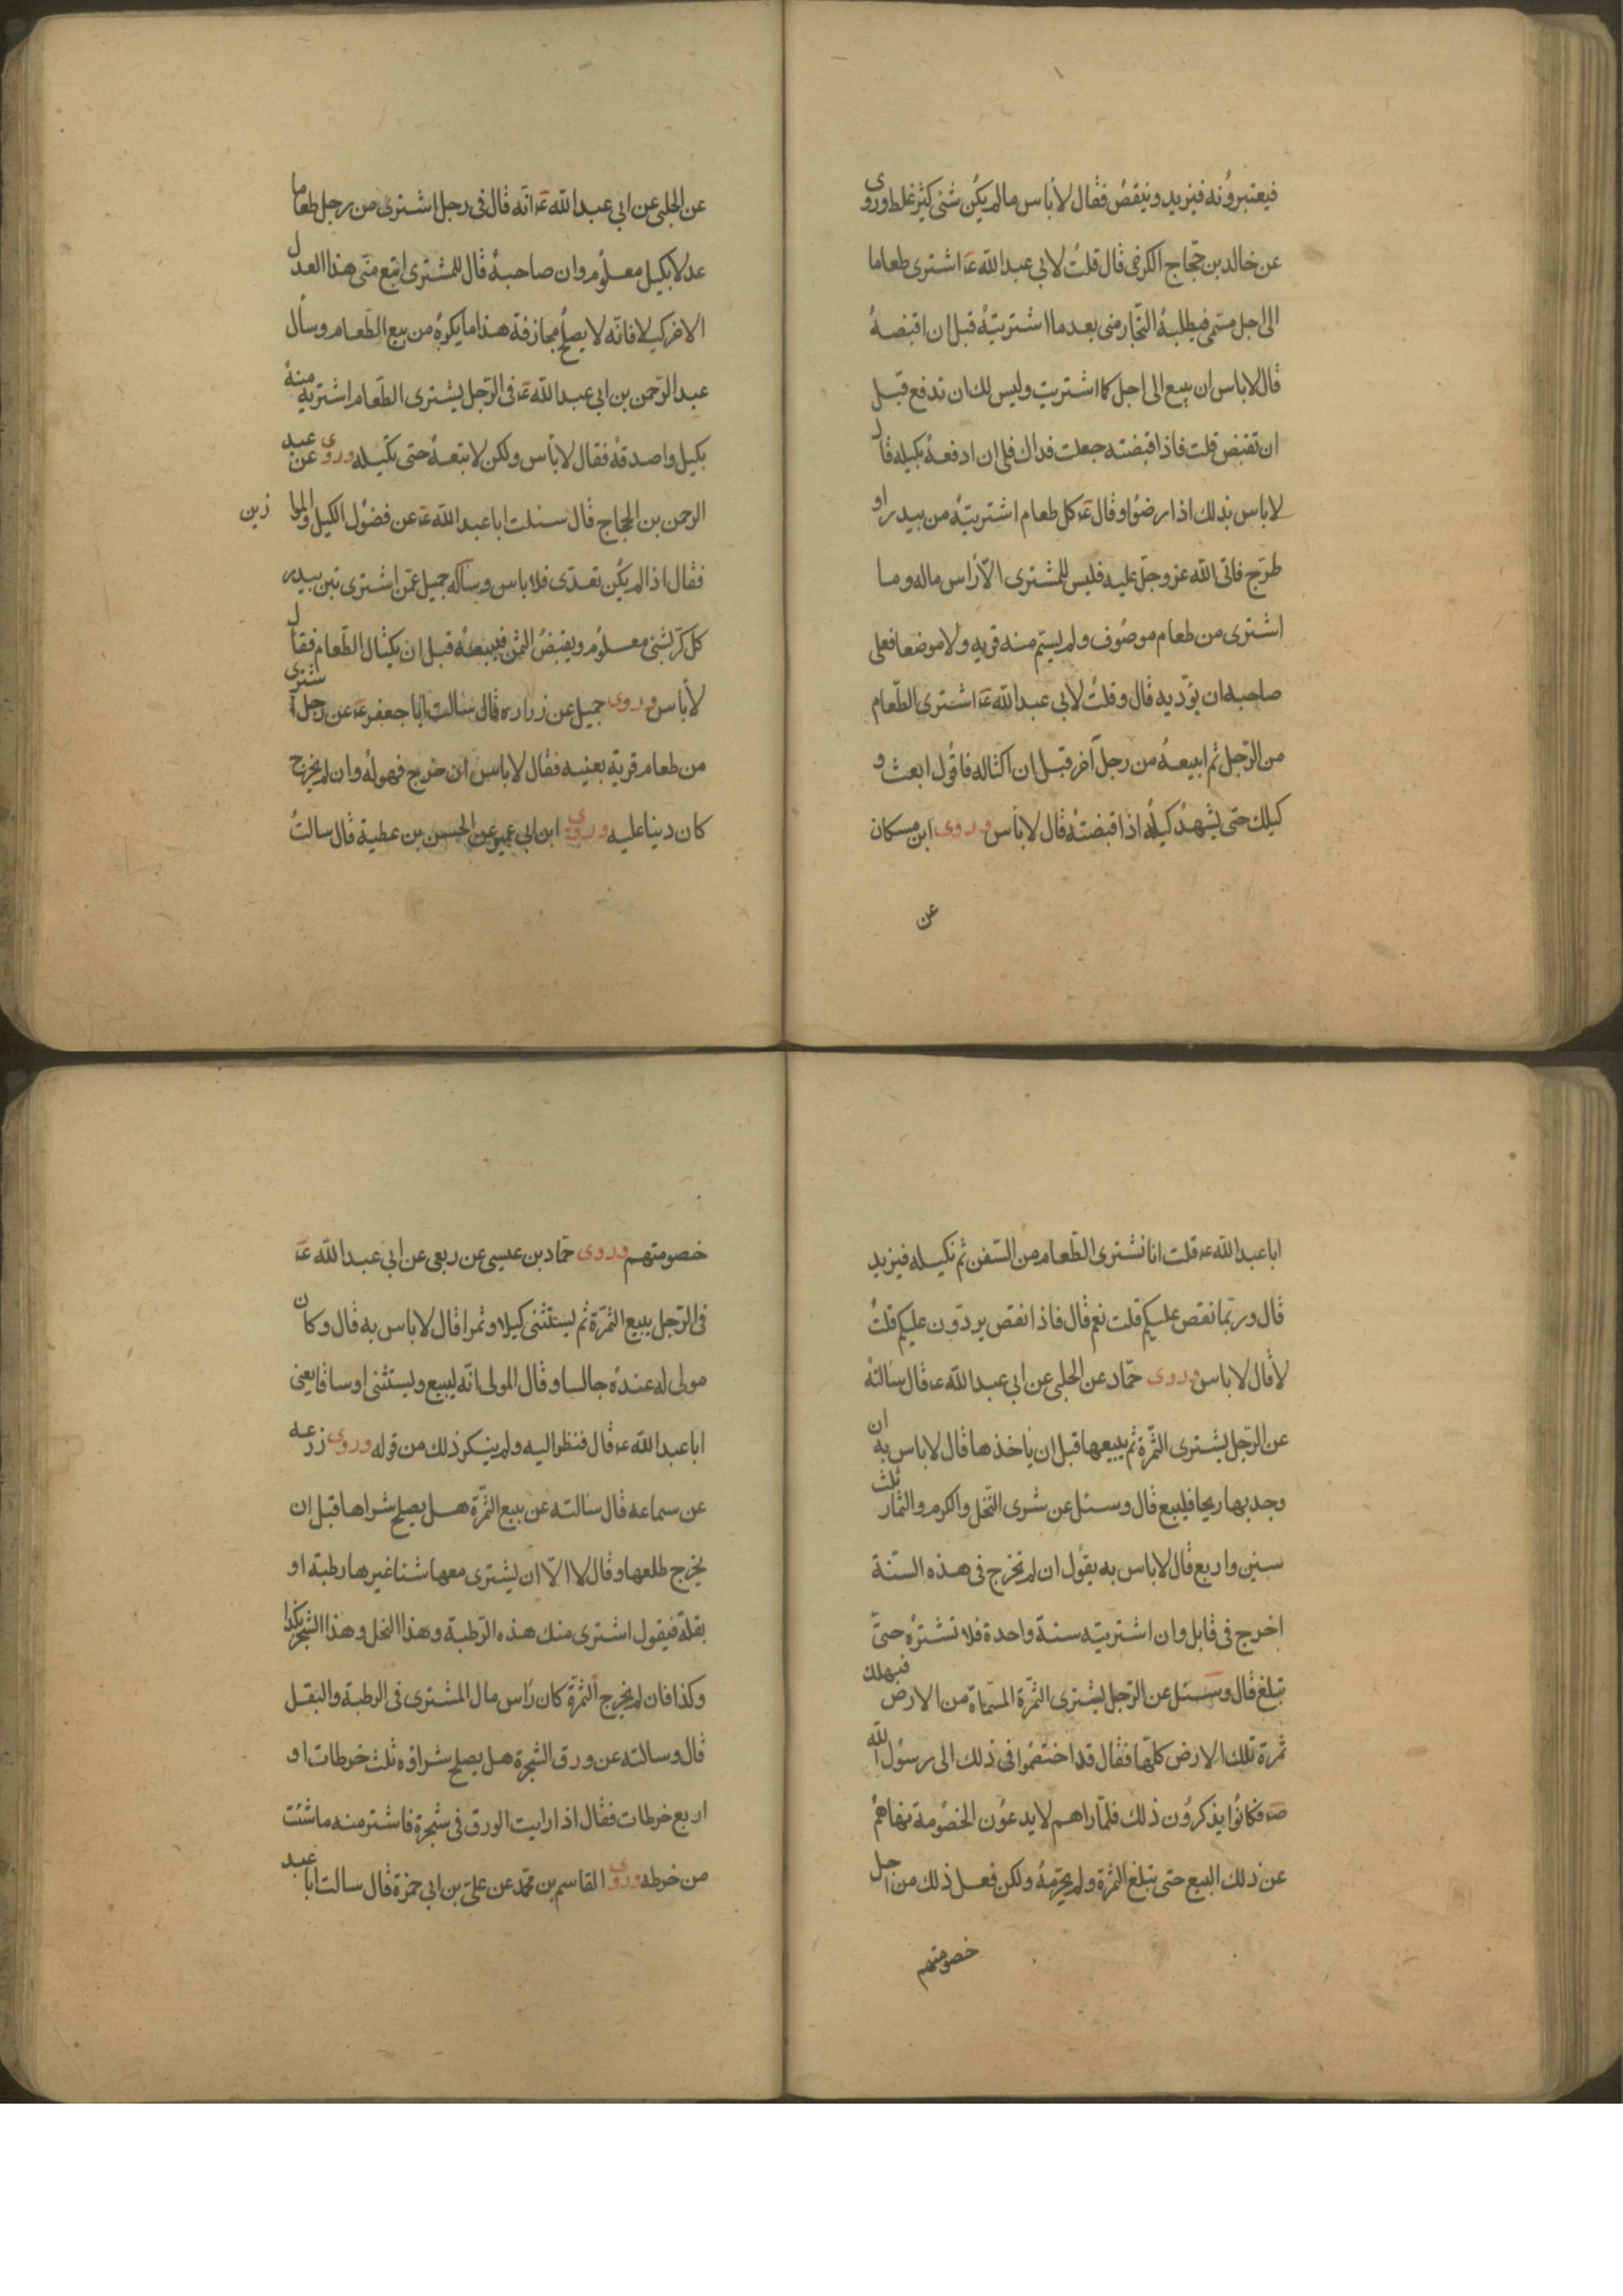 فيعتبرونه فيزيد وينقص فقال لا بأس ما لم يكن شئ كثير غلط وروى
عن خالد بن حجاج الكرخى قال قلت لابي عبد الله ع اشترى طعاما
الى اجل مسمى فيطلبه التجار منى بعد ما اشتريته قبل ان اقبضه
قال لا باس ان يبيع الى اجل كما اشتريت وليس لك ان تدفع قبل
ان تقبض قلت فاذا قبضته جعلت فداك فلى ان ادفعه بكيله قال
لا باس بذلك اذا رضوا وقال ع كل طعام اشتريته من بيدر او
طرح فاتى الله عز وجل عليه فليس للمشترى الا راس ماله وما
اشترى من طعام موصوف ولم يسم منه قريه ولا موضعا فعلى
صاحبه ان يؤديه قال وقلت لابي عبد الله ع اشترى الطعام
من الرجل ثم ابيعه من رجل آخر قبل ان اكتاله فاقول ابعث و
كيلك حتى يشهد كيله اذا قبضته قال لا بأس وروى ابن مسكان
عن
عن الحلبى عن ابي عبد الله ع انه قال فى رجل اشترى من رجل طعاما
عدلا بكيل معلوم وان صاحبه قال للمشترى ابتع منى هذا العدل
الاخر كيلا فانه لا يصلح مجازفة هذا ما يكره من بيع الطعام وسأل
عبد الرحمن بن ابي عبد الله ع فى الرجل يشترى الطعام اشتريه منه
بكيل واصدقه فقال لا بأس ولكن لا تبعه حتى تكيله وروى عن عبد
الرحمن بن الحجاج قال سئلت ابا عبد الله ع عن فضول الكيل والموا زين
فقال اذا لم يكن تعدى فلا باس وساله جميل عمن اشترى تبن بيدر
كل كر بشئ معلوم ويقبض الثمن فيبيعه قبل ان يكتال الطعام فقال
لا بأس وروى جميل عن زراره قال سالت ابا جعفر ع عن رجل اشترى
من طعام قرية بعينيه فقال لا باس ان خرج فهو له وان لم يخرج
كان دينا عليه وروى ابن ابي عمير عن الحسن بن عطية قال سالت
ابا عبد الله ع قلت انا نشترى الطعام من السفن ثم نكيله فيزيد
قال وربما نقص عليكم قلت نعم قال فاذا نقص يردون عليكم قلت
لا قال لا باس وروى حماد عن الحلبى عن ابي عبد الله ع قال سالته
عن الرجل يشترى الثمرة ثم يبيعها قبل ان ياخذها قال لا باس به ان
وجد بها ربحا فليبع قال وسئل عن شرى النخل والكرم والثمار ثلث
سنين واربع قال لا باس به يقول ان لم تخرج فى هذه السنة
اخرج فى قابل وان اشتريته سنة واحدة فلا تشتره حتى
تبلغ قال وسئل عن الرجل يشترى الثمرة المسماة من الارض فيهلك
ثمرة تلك الارض كلها فقال قد اختصموا فى ذلك الى رسول الله
ص فكانوا يذكرون ذلك فلما راهم لا يدعون الخصومة نهاهم
عن ذلك البيع حتى تبلغ الثمرة ولم يحرمه ولكن فعل ذلك من اجل
خصومتهم
خصومتهم وروى حماد بن عيسى عن ربعى عن ابي عبد الله ع
فى الرجل يبيع الثمرة ثم يستثنى كيلا وتمرا قال لا باس به قال وكان
مولى له عنده جالسا وقال المولى انه ليبيع ويستثنى اوساقا يعنى
ابا عبد الله ع قال فنظر اليه ولم ينكر ذلك من قوله وروى زرعه
عن سماعه قال سالته عن بيع الثمرة هل يصلح شراها قبل ان
يخرج طلعها وقال لا الا ان يشترى معها شئا غيرها رطبة او
بقلة فيقول اشترى منك هذه الرطبة وهذا النخل وهذا الشجر بكذا
وكذا فان لم يخرج الثمرة كان راس مال المشترى فى الرطبة والبقل
قال وسالته عن ورق الشجرة هل يصلح شراؤه ثلث خرطات او
اربع خرطات فقال اذا رايت الورق فى شجرة فاشتر منه ما شئت
من خرطه وروى القاسم بن محمد عن على بن ابي حمزة قال سالت ابا عبد